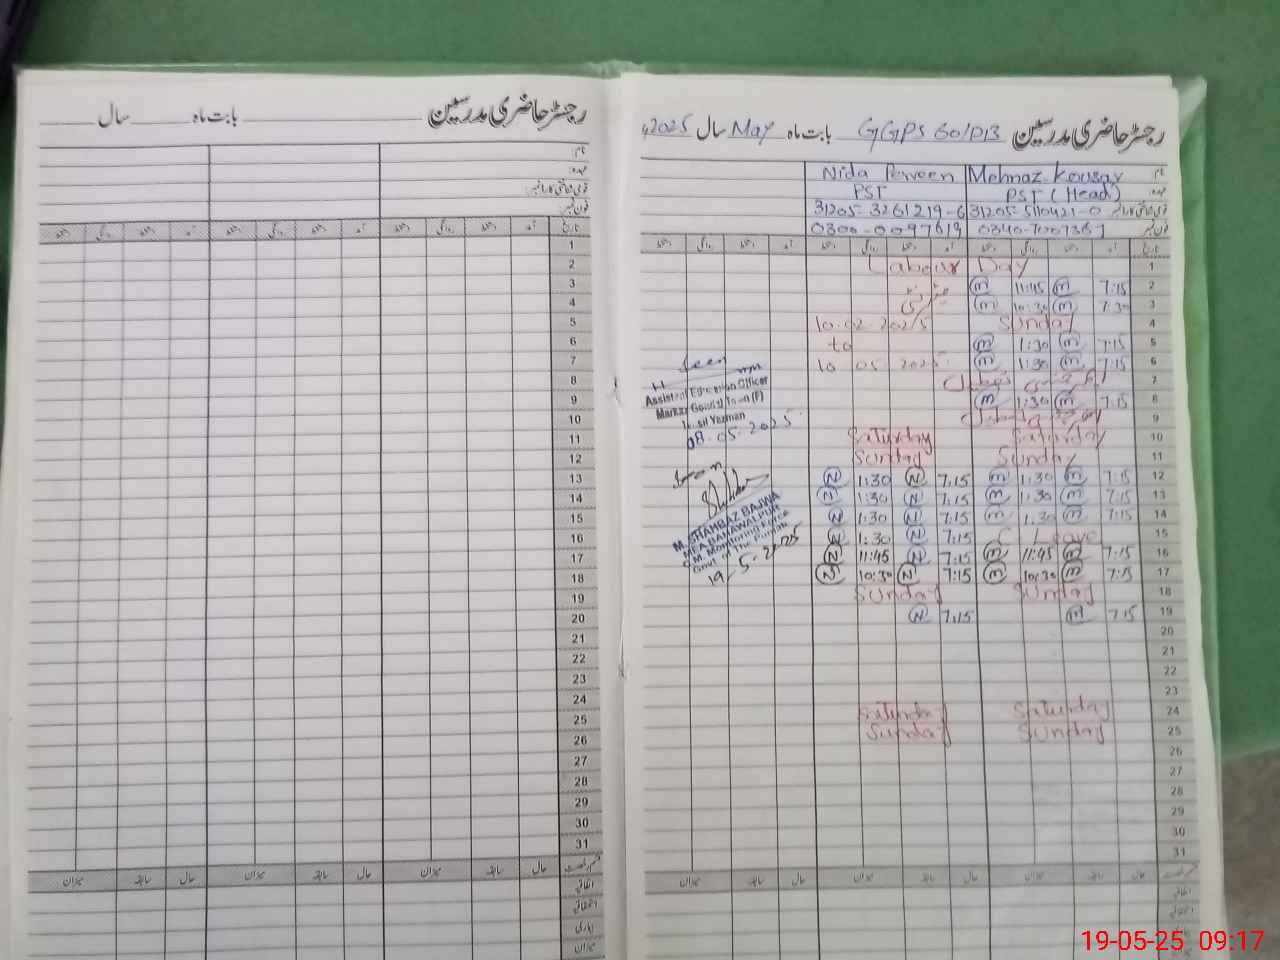 رجسٹر حاضری مدرسین ــــ بابت ماہ ــــ سال ــــ
نام
عہدہ
قومی شناختی کارڈ نمبر
فون نمبر
تاریخ
1
2
3
4
5
6
7
8
9
10
11
12
13
14
15
16
17
18
19
20
21
22
23
24
25
26
27
28
29
30
31
حال سابقہ میزان حال سابقہ میزان حال سابقہ میزان
اتفاقیہ
استحقاقیہ
بیماری
میزان
رجسٹر حاضری مدرسین GGPS 60/DB بابت ماہ May سال 2025
نام Mehnaz Kousar Nida Perveen
عہدہ PST (Head) PST
قومی شناختی کارڈ نمبر 31205-5110421-0 31205-3261219-6
فون نمبر 0340-7007367 0300-0097619
تاریخ
1 Labour Day
2 7:15 m 11:45 m
3 7:30 m 10:30 m
4 Sunday 10.02.2025
5 7:15 m 1:30 m to
6 7:15 m 1:30 m 10 05 2025
7
8 7:15 m 1:30 m
9
10 Saturday Saturday
11 Sunday Sunday
12 7:15 m 1:30 m 7:15 N 1:30 N
13 7:15 m 1:30 m 7:15 N 1:30 N
14 7:15 m 1:30 m 7:15 N 1:30 N
15 C Leave 7:15 N 1:30 N
16 7:15 m 11:45 m 7:15 N 11:45 N
17 7:15 m 10:30 m 7:15 N 10:30 N
18 Sunday Sunday
19 7:15 m 7:15 N
20
21
22
23
24 Saturday Saturday
25 Sunday Sunday
26
27
28
29
30
31
حال سابقہ میزان حال سابقہ میزان حال سابقہ میزان
اتفاقیہ
استحقاقیہ
بیماری
میزان
Seen
Assistant Education Officer
Markaz
Tehsil Yazman
08-05-2025
M. SHAHBAZ BAJWA
MEA BAHAWALPUR
C.M. Monitoring Force
Govt of The Punjab
19-5-2025
19-05-25 09:17